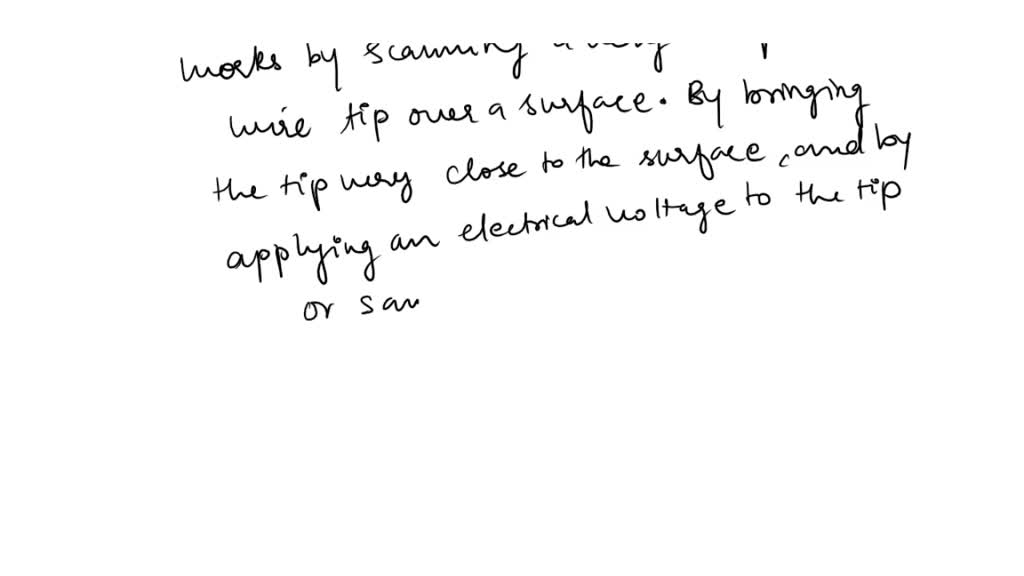 works by scanning a very
wire tip over a surface. By bringing
the tip very close to the surface, and by
applying an electrical voltage to the tip
or sam